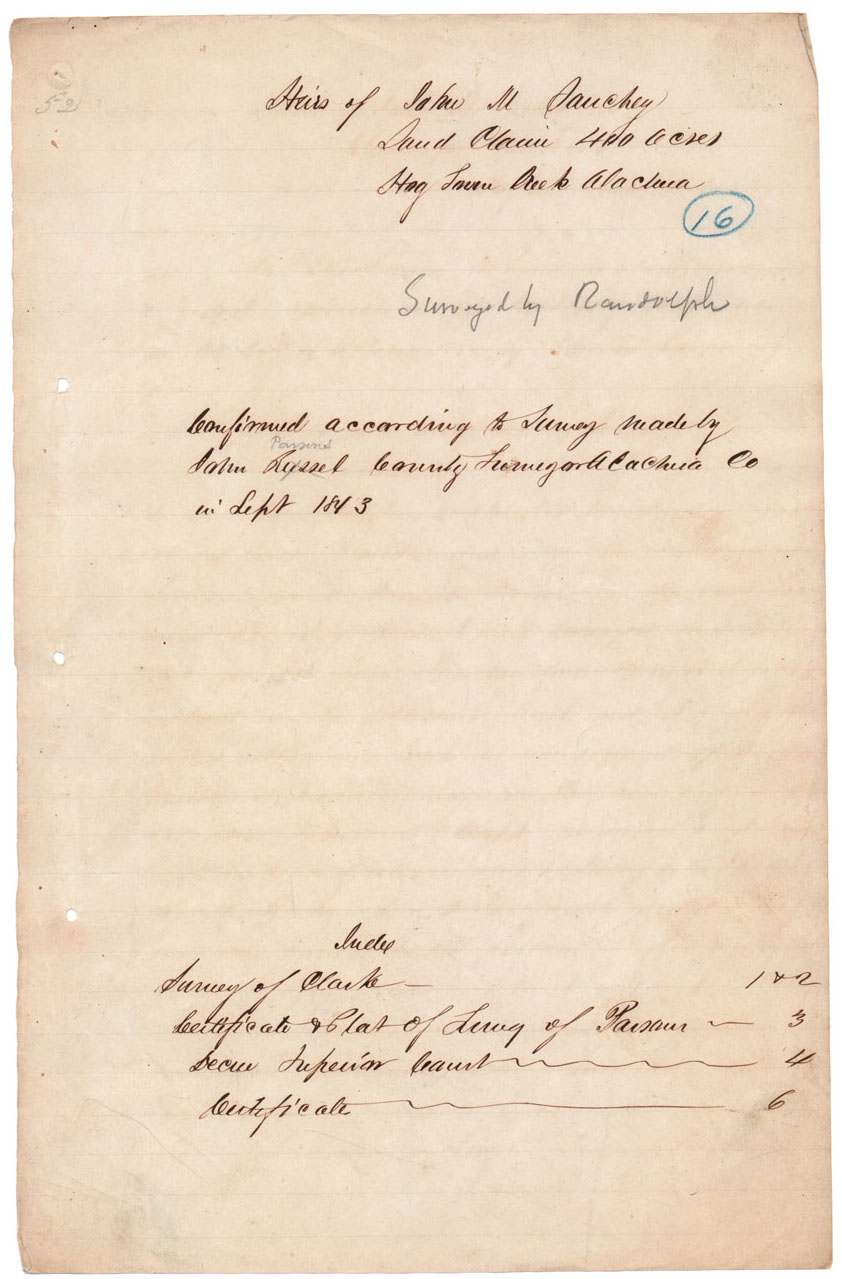 52
Heirs of John M Sanchez
Land Claim 400 Acres
Hog Town Creek Alachua
16
Surveyed by Randolph
Confirmed according to Survey made by
Parsons
John County Surveyor Alachua Co
in Sept 1843
Index
Survey of Clarke — 1 & 2
Certificate & Plat of Survey of Parsons — 3
Decree Superior Court — 4
Certificate — 6